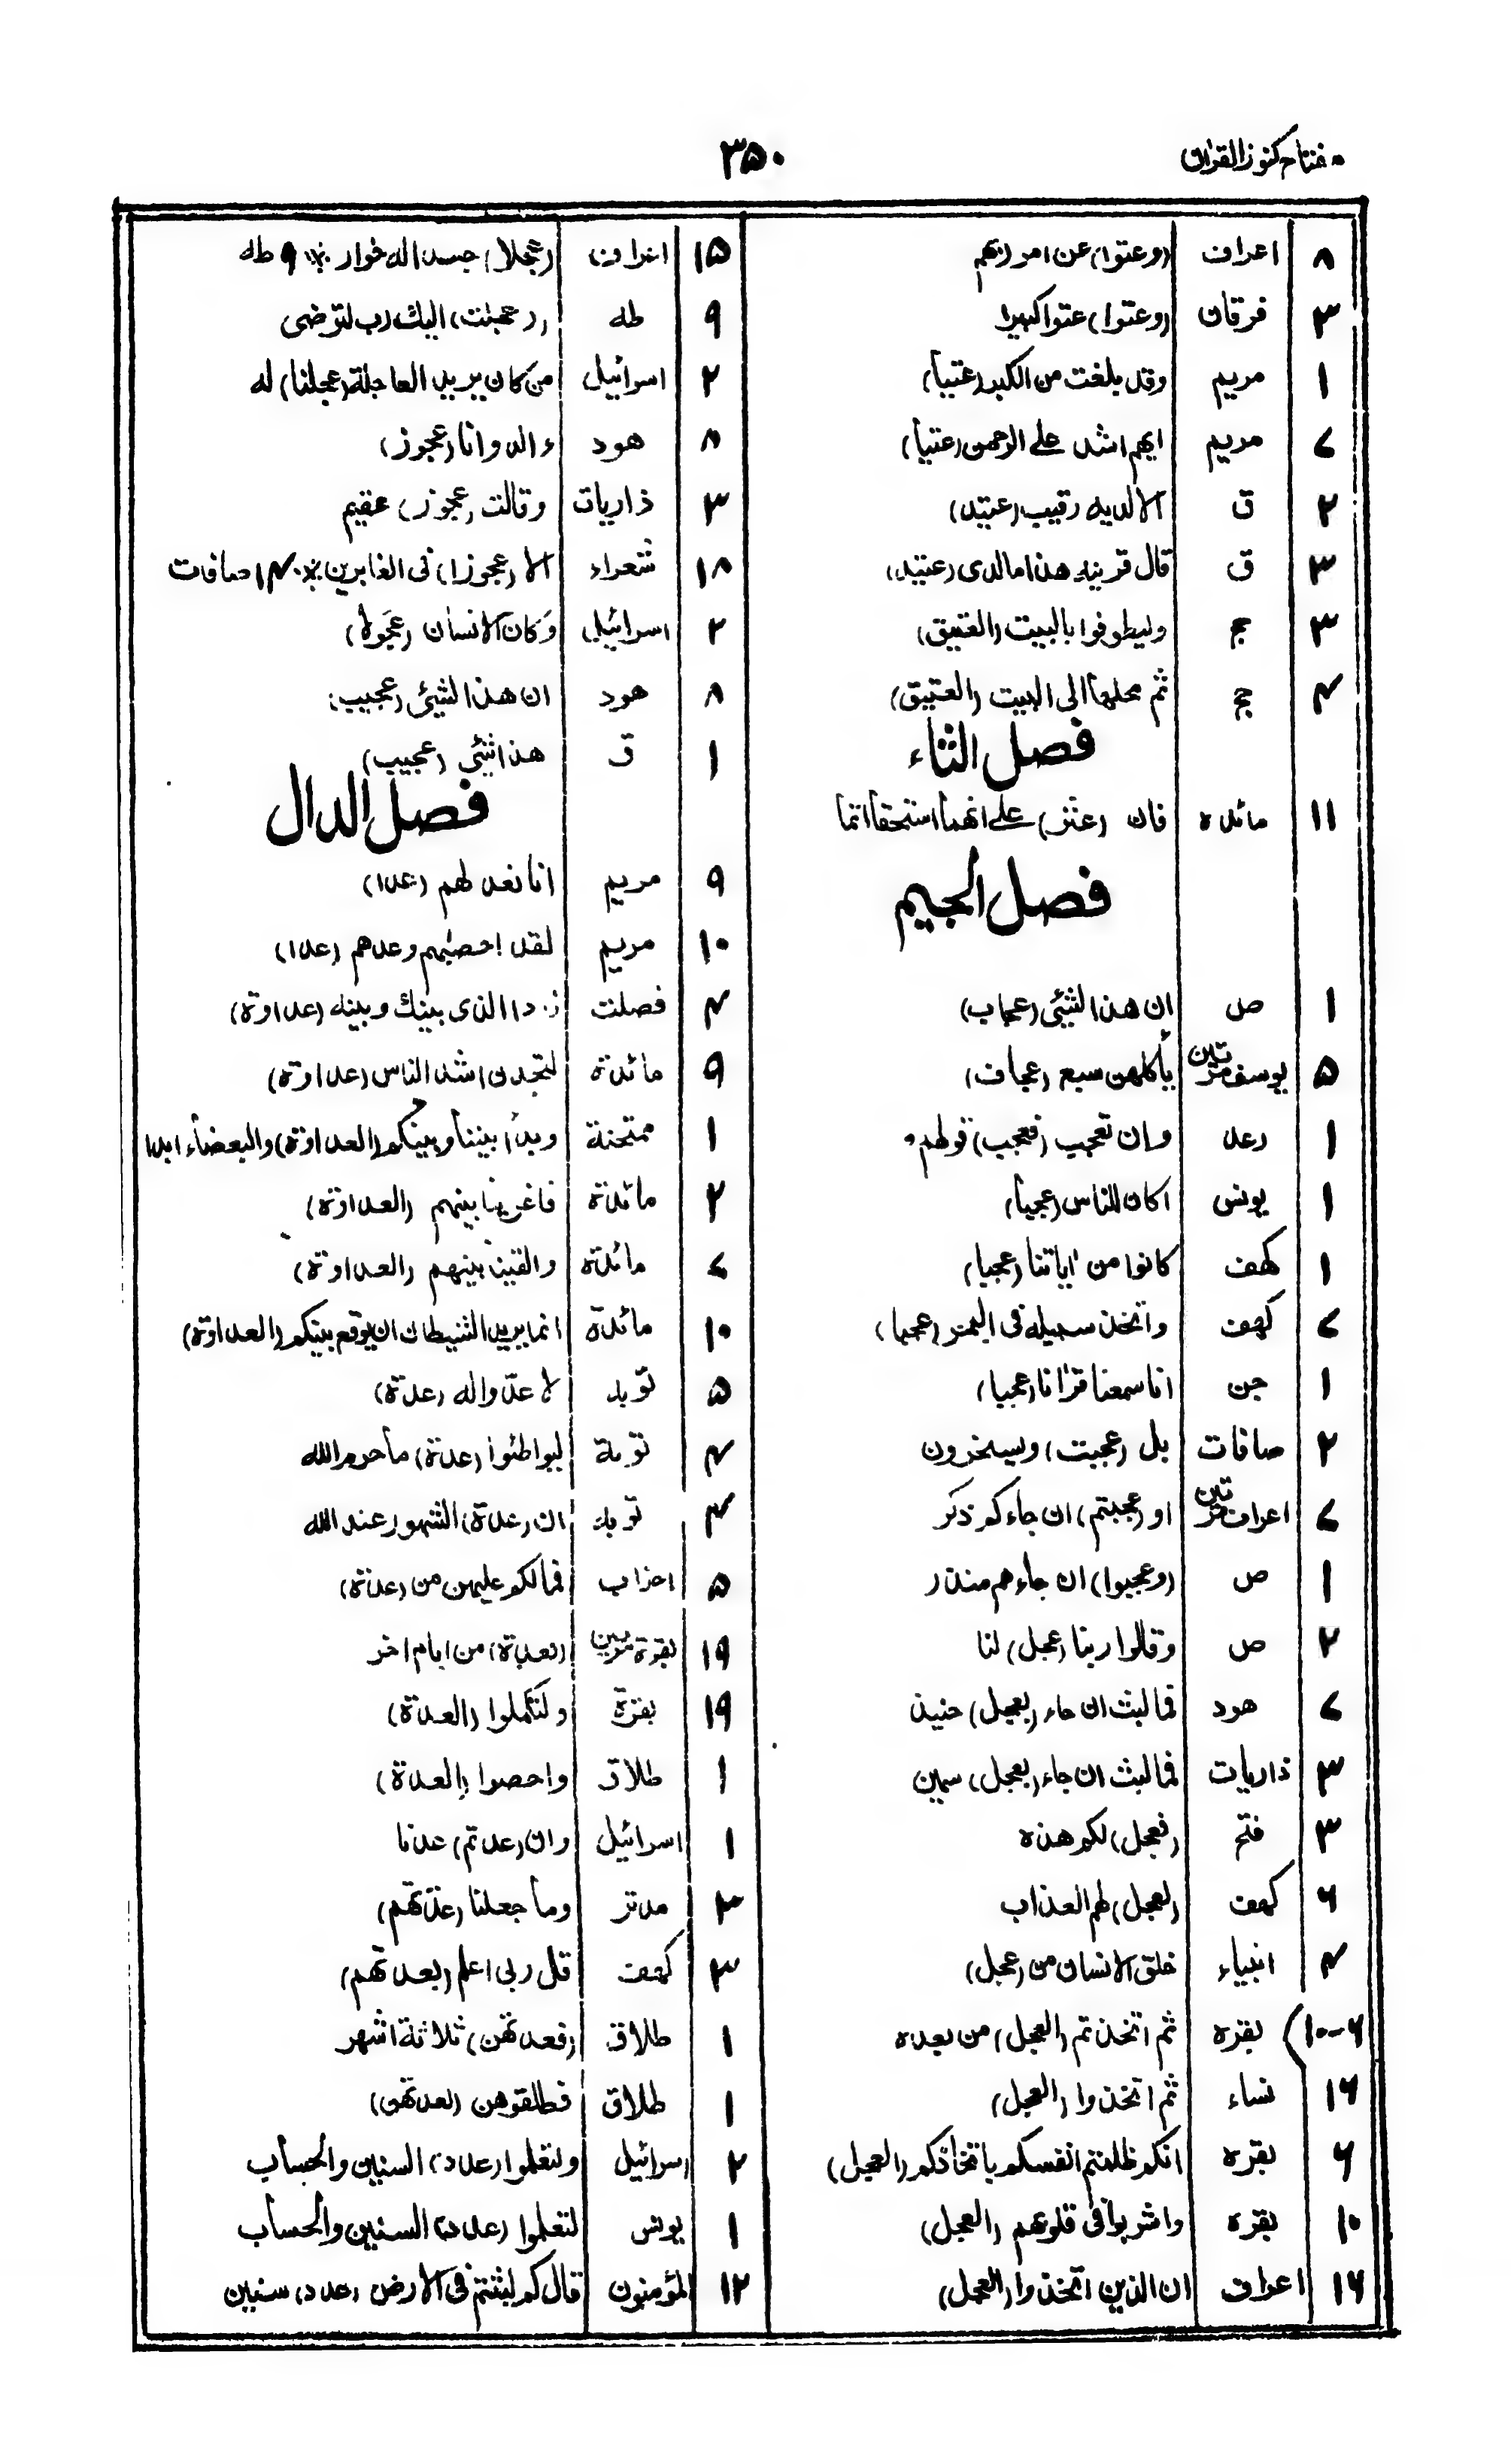 مفتاح كنوز القران
۳۵۰
۸ اعراف (وعتوا) عن امر ربهم
۳ فرقان (وعتوا) عتوا كبيرا
۱ مريم وقد بلغت من الكبر (عتيا)
۷ مريم ايهم اشد على الرحمن (عتيا)
۲ ق الا لديه رقيب (عتيد)
۳ ق قال قرينه هذا ما لدى (عتيد)
۳ حج وليطوفوا بالبيت (العتيق)
۴ حج ثم محلها الى البيت (العتيق)
فصل الثاء
۱۱ مائده فان (عثر) على انهما استحقا اثما
فصل الجيم
۱ ص ان هذا لشيئ (عجاب)
۵ يوسف مرتين يأكلهن سبع (عجاف)
۱ رعد وان تعجب (فعجب) قولهم
۱ يونس اكان للناس (عجبا)
۱ كهف كانوا من اياتنا (عجبا)
۷ كهف واتخذ سبيله فى البحر (عجبا)
۱ جن انا سمعنا قرانا (عجبا)
۲ صافات بل (عجبت) ويسخرون
۷ اعراف مرتين او (عجبتم) ان جاءكم ذكر
۱ ص (وعجبوا) ان جاءهم منذر
۲ ص وقالوا ربنا (عجل) لنا
۷ هود فما لبث ان جاء (بعجل) حنيذ
۳ ذاريات فما لبث ان جاء (بعجل) سمين
۳ فتح (فعجل) لكم هذه
۶ كهف (لعجل) لهم العذاب
۴ انبياء خلق الانسان من (عجل)
۶-۱۰ بقره ثم اتخذتم (العجل) من بعده
۱۶ نساء ثم اتخذوا (العجل)
۶ بقره انكم ظلمتم انفسكم باتخاذكم (العجل)
۱۰ بقره واشربوا فى قلوبهم (العجل)
۱۶ اعراف ان الذين اتخذوا (العجل)
۱۵ اعراف (عجلا) جسدا له خوار ۹ طه
۹ طه (وعجلت) اليك رب لترضى
۲ اسرائيل من كان يريد العاجلة (عجلنا) له
۸ هود ءالد وانا (عجوز)
۳ ذاريات وقالت (عجوز) عقيم
۱۸ شعراء الا (عجوزا) فى الغابرين ۴ صافات
۲ اسرائيل وكان الانسان (عجولا)
۸ هود ان هذا لشيئ (عجيب)
۱ ق هذا شئ (عجيب)
فصل الدال
۹ مريم انما نعد لهم (عدا)
۱۰ مريم لقد احصيهم وعدهم (عدا)
۴ فصلت ذا الذى بينك وبينه (عداوة)
۹ مائدة لتجدن اشد الناس (عداوة)
۱ ممتحنة وبدا بيننا وبينكم (العداوة) والبغضاء ابدا
۲ مائدة فاغرينا بينهم (العداوة)
۷ مائدة والقينا بينهم (العداوة)
۱۰ مائدة انما يريد الشيطان ان يوقع بينكم (العداوة)
۵ توبه لاعدوا له (عدة)
۴ توبة ليواطئوا (عدة) ما حرم الله
۴ توبه ان (عدة) الشهور عند الله
۵ احزاب فما لكم عليهن من (عدة)
۱۹ بقرة مرتين (فعدة) من ايام اخر
۱۹ بقرة ولتكملوا (العدة)
۱ طلاق واحصوا (العدة)
۱ اسرائيل وان (عدتم) عدنا
۲ مدثر وما جعلنا (عدتهم)
۳ كهف قل ربى اعلم (بعدتهم)
۱ طلاق (فعدتهن) ثلاثة اشهر
۱ طلاق فطلقوهن (لعدتهن)
۲ اسرائيل ولتعلموا (عدد) السنين والحساب
۱ يونس لتعلموا (عدد) السنين والحساب
۱۲ المؤمنون قال كم لبثتم فى الارض (عدد) سنين